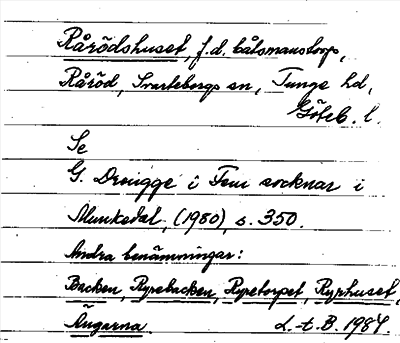 Rårödshuset, f.d. båtsmanstorp,
Råröd, Svarteborgs sn, Tunge hd,
Göteb. l.
Se
G. Drougge i Fem socknar i
Munkedal, (1980), s. 350.
Andra benämningar:
Backen, Ryrebacken, Ryretorpet, Ryrhuset,
Ängarna. L-t B. 1984.